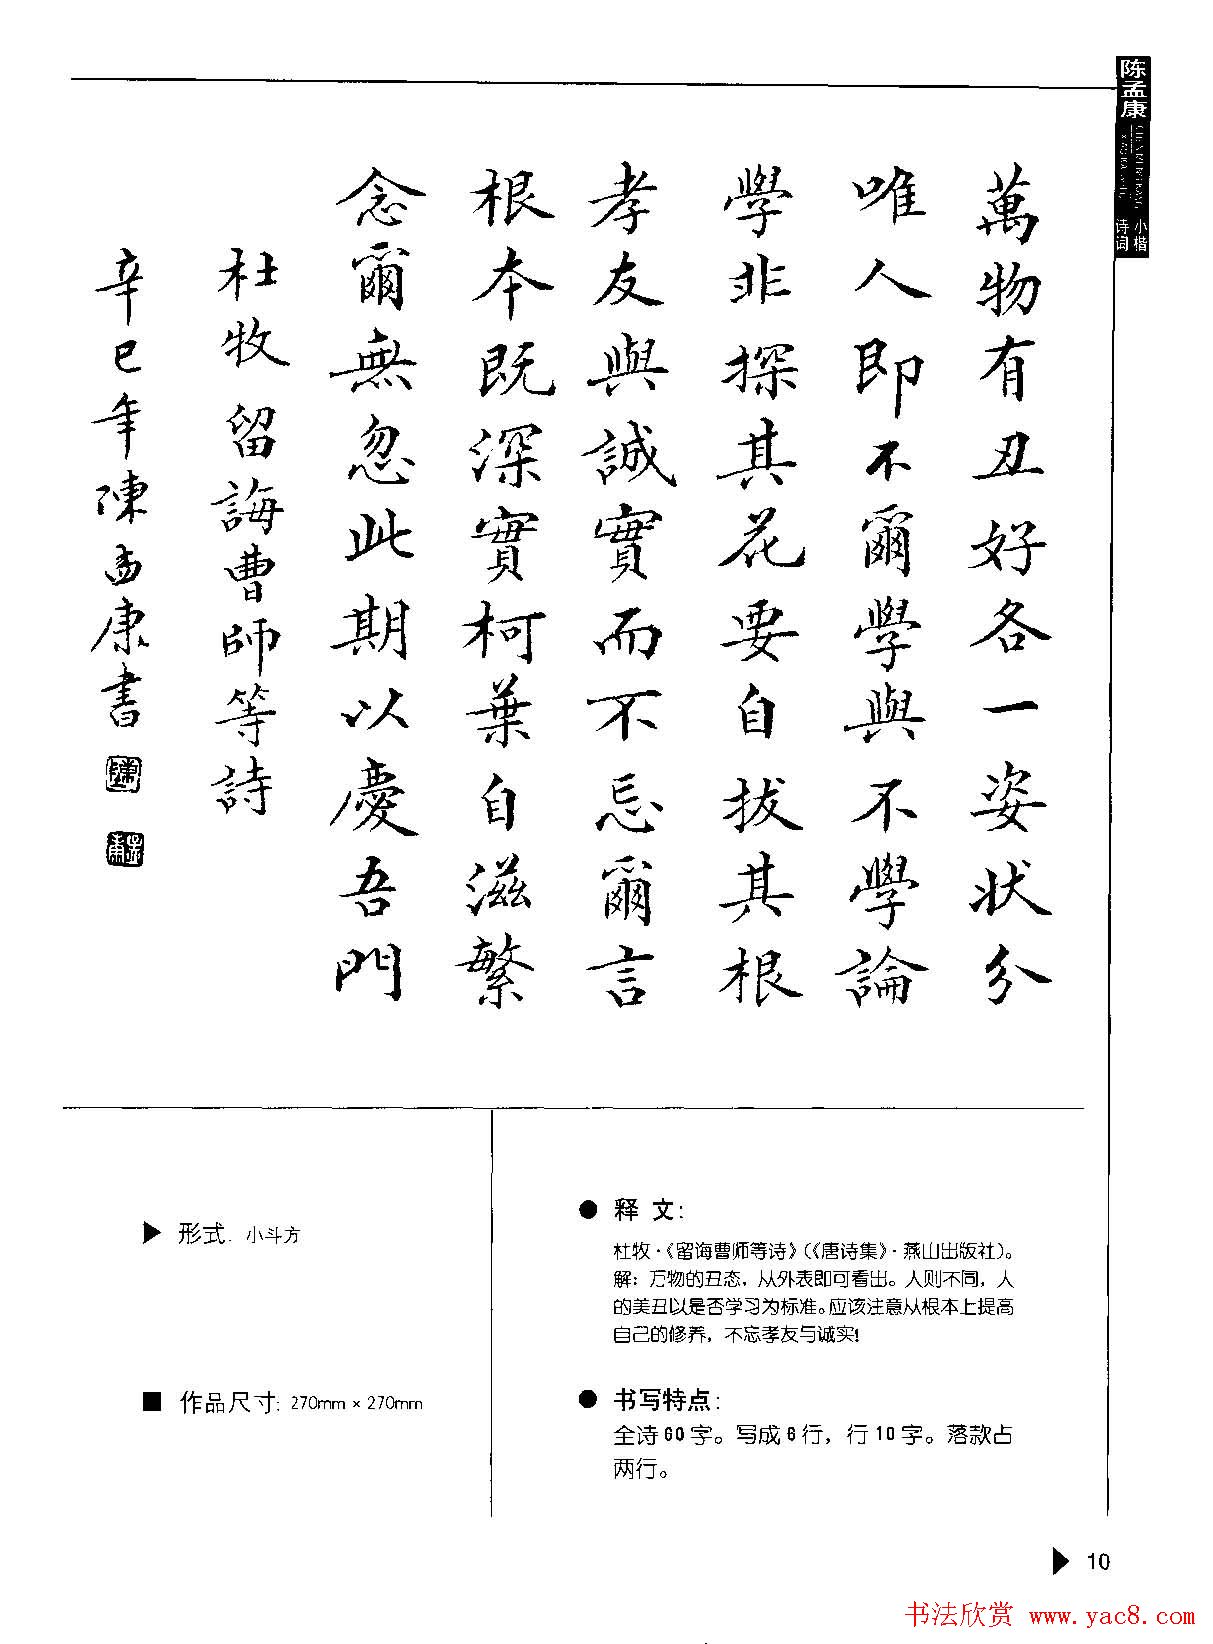 陈孟康
小楷
诗词
萬物有丑好各一姿狀分
唯人即不爾學與不學論
學非探其花要自拔其根
孝友與誠實而不忘爾言
根本既深實柯葉自滋繁
念爾無忽此期以慶吾門
杜牧留誨曹師等詩
辛巳年陳孟康書
▶ 形式. 小斗方
■ 作品尺寸: 270mm × 270mm
● 释 文:
杜牧·《留诲曹师等诗》(《唐诗集》·燕山出版社)。
解: 万物的丑态, 从外表即可看出。人则不同, 人
的美丑以是否学习为标准。应该注意从根本上提高
自己的修养, 不忘孝友与诚实!
● 书写特点:
全诗60字。写成6行, 行10字。落款占
两行。
▶ 10
书法欣赏 www.yac8.com